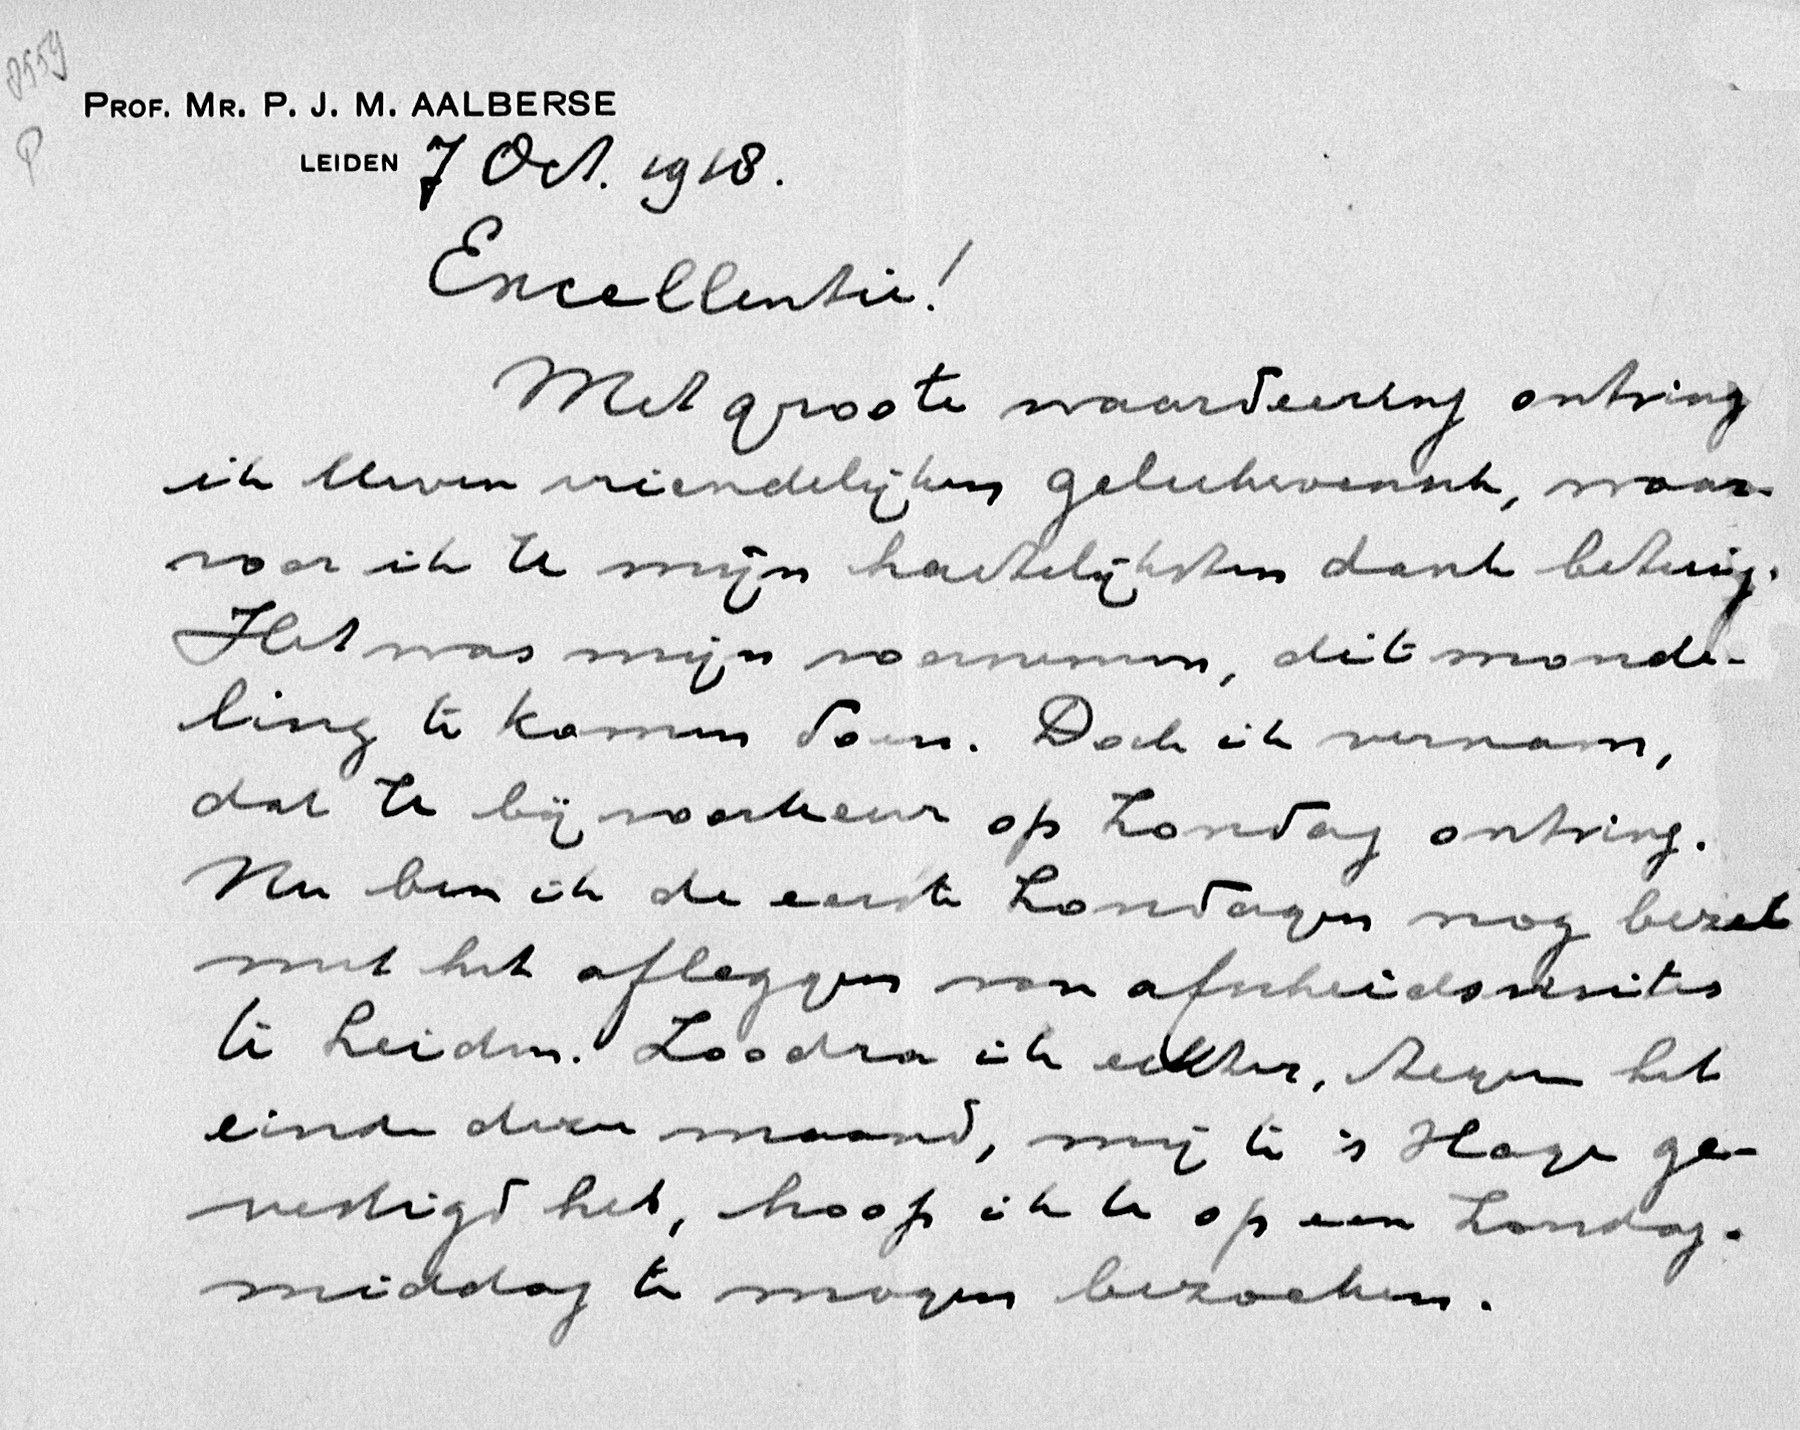 2559
P
PROF. MR. P. J. M. AALBERSE
LEIDEN 7 Oct. 1918.
Excellentie!
Met groote waardeering ontving
ik Uwen vriendelijken gelukwensch, waar-
voor ik U mijn hartelijksten dank betuig.
Het was mijn voornemen, dit monde-
ling te komen doen. Doch ik vernam,
dat U bij voorkeur op Zondag ontving.
Nu ben ik de eerste Zondagen nog bezet
met het afleggen van afscheidsvisites
te Leiden. Zoodra ik echter, tegen het
einde dezer maand, mij te 's Hage ge-
vestigd heb, hoop ik U op een Zondag-
middag te mogen bezoeken.